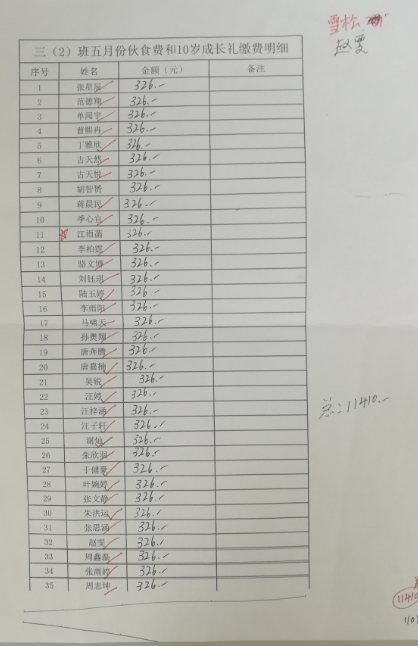 雪松
赵雯
三（2）班五月份伙食费和10岁成长礼缴费明细
序号 姓名 金额（元） 备注
1 张星辰 326.-
2 范德翔 326.-
3 单闻宇 326.-
4 曾熙冉 326.-
5 丁雅欣 326.-
6 古天然 326.-
7 古天怡 326.-
8 胡智赟 326.-
9 蒋晨民 326.-
10 季心宜 326.-
11 江雨菡 326.-
12 李柏霆 326.-
13 骆文博 326.-
14 刘钰琪 326.-
15 陆玉婷 326.-
16 李雨阳 326.-
17 马啸天 326.-
18 孙奥翔 326.-
19 唐奔腾 326.-
20 唐嘉楠 326.-
21 吴锐 326.-
22 汪婷 326.-
23 汪梓涵 326.-
24 汪子轩 326.-
25 谢灿 326.-
26 朱欣羽 326.-
27 于健豪 326.-
28 叶婉婷 326.-
29 张文静 326.-
30 朱洪运 326.-
31 张思涵 326.-
32 赵雯 326.-
33 周鑫磊 326.-
34 张雨婷 326.-
35 周志坤 326.-
总：11410.-